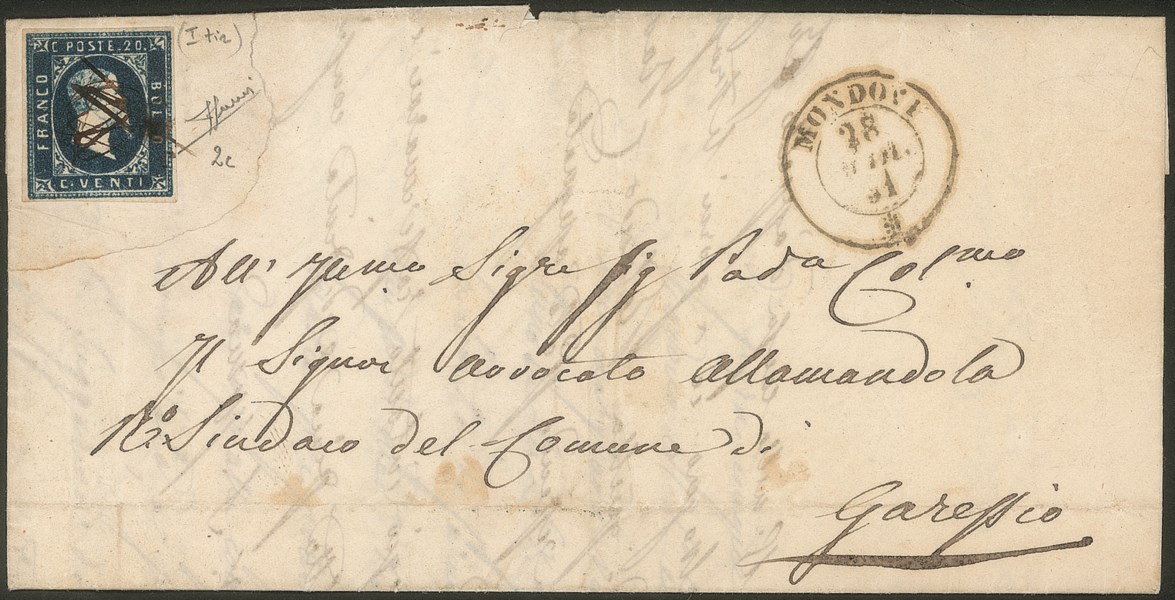 C. POSTE. 20.
FRANCO
BOLLO
C. VENTI
(I tir)
2c
MONDOVI
28
LUG.
51
All' Illmo Sigre Sig Pada Colmo
Il Signor Avvocato Allamandola
Ro Sindaco del Comune di
Garessio